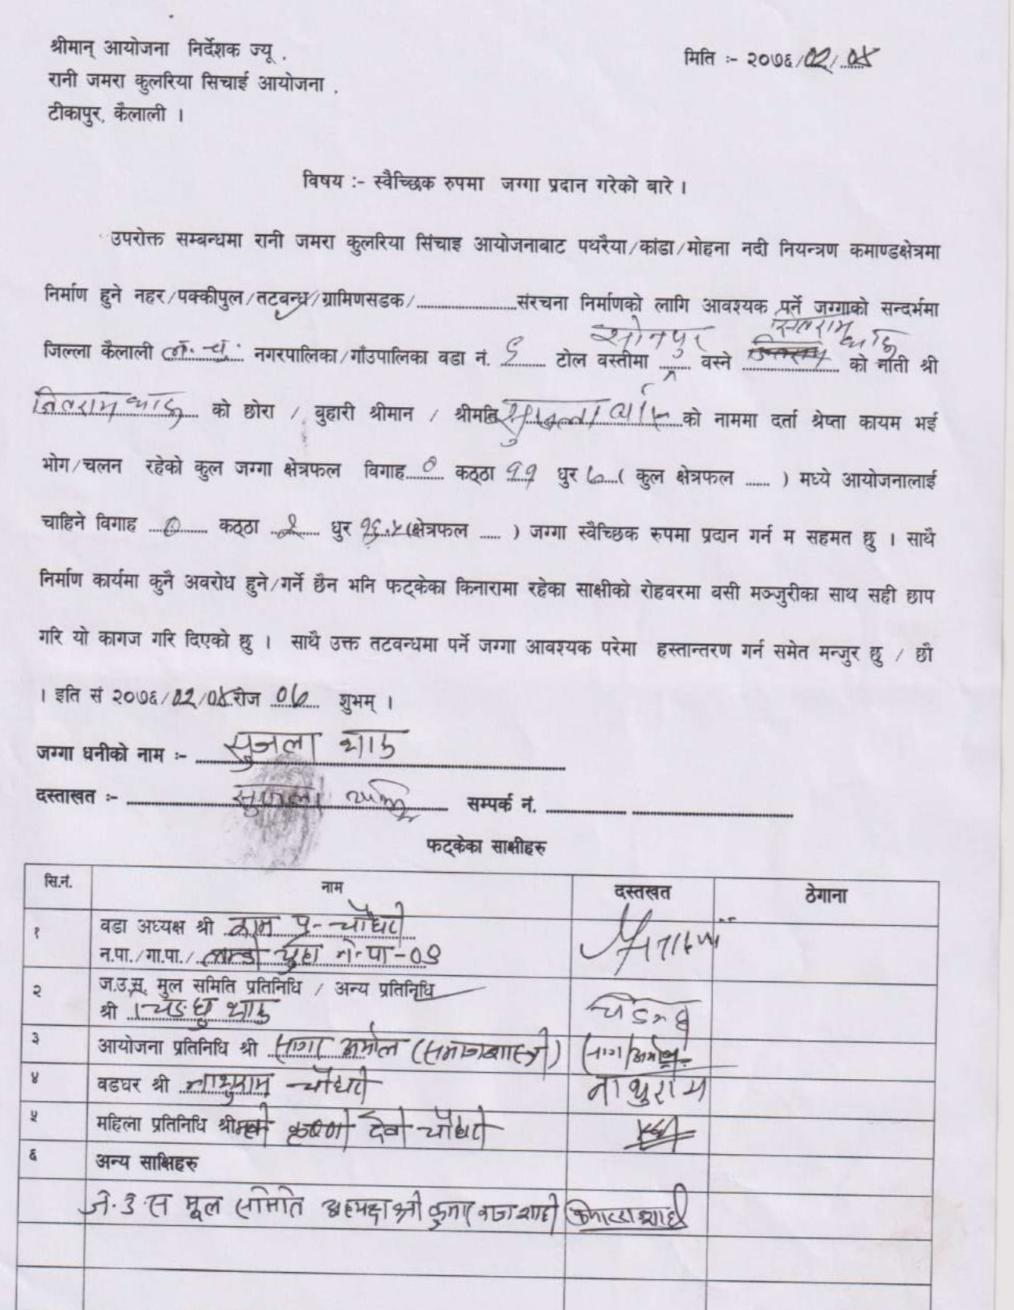 श्रीमान् आयोजना निर्देशक ज्यू .
मिति :- २०७६/०२/०४
रानी जमरा कुलरिया सिचाई आयोजना .
टीकापुर, कैलाली ।
विषय :- स्वैच्छिक रुपमा जग्गा प्रदान गरेको बारे ।
उपरोक्त सम्बन्धमा रानी जमरा कुलरिया सिंचाइ आयोजनाबाट पथरैया/कांडा/मोहना नदी नियन्त्रण कमाण्डक्षेत्रमा
निर्माण हुने नहर/पक्कीपुल/तटबन्ध/ग्रामिणसडक/..................संरचना निर्माणको लागि आवश्यक पर्ने जग्गाको सन्दर्भमा
जिल्ला कैलाली ल. चु. नगरपालिका/गाँउपालिका वडा नं. ६ टोल वस्तीमा सोनपुर वस्ने को नाती श्री
को छोरा / बुहारी श्रीमान / श्रीमति को नाममा दर्ता श्रेष्ता कायम भई
भोग/चलन रहेको कुल जग्गा क्षेत्रफल विगाह ० कठ्ठा ११ धुर ७ ( कुल क्षेत्रफल ...... ) मध्ये आयोजनालाई
चाहिने विगाह ० कठ्ठा धुर १६.५ (क्षेत्रफल ..... ) जग्गा स्वैच्छिक रुपमा प्रदान गर्न म सहमत छु । साथै
निर्माण कार्यमा कुनै अवरोध हुने/गर्ने छैन भनि फट्केका किनारामा रहेका साक्षीको रोहवरमा वसी मञ्जुरीका साथ सही छाप
गरि यो कागज गरि दिएको छु । साथै उक्त तटवन्धमा पर्ने जग्गा आवश्यक परेमा हस्तान्तरण गर्न समेत मन्जुर छु / छौ
। इति सं २०७६/०२/०४ रोज ०७ शुभम् ।
जग्गा धनीको नाम :- सुजला
दस्ताखत :- सम्पर्क नं. ..............................
फट्केका साक्षीहरु
सि.नं. नाम दस्तखत ठेगाना
१ वडा अध्यक्ष श्री राम प्र. चौधरी
न.पा./गा.पा./ चुहा न.पा-०९
२ ज.उ.स. मुल समिति प्रतिनिधि / अन्य प्रतिनिधि
श्री
३ आयोजना प्रतिनिधि श्री (समाजशास्त्री)
४ वडघर श्री नाथुराम चौधरी नाथुराम
५ महिला प्रतिनिधि श्री कृष्ण देवी चौधरी
६ अन्य साक्षिहरु
ज.उ.स मूल समिति अध्यक्ष श्री